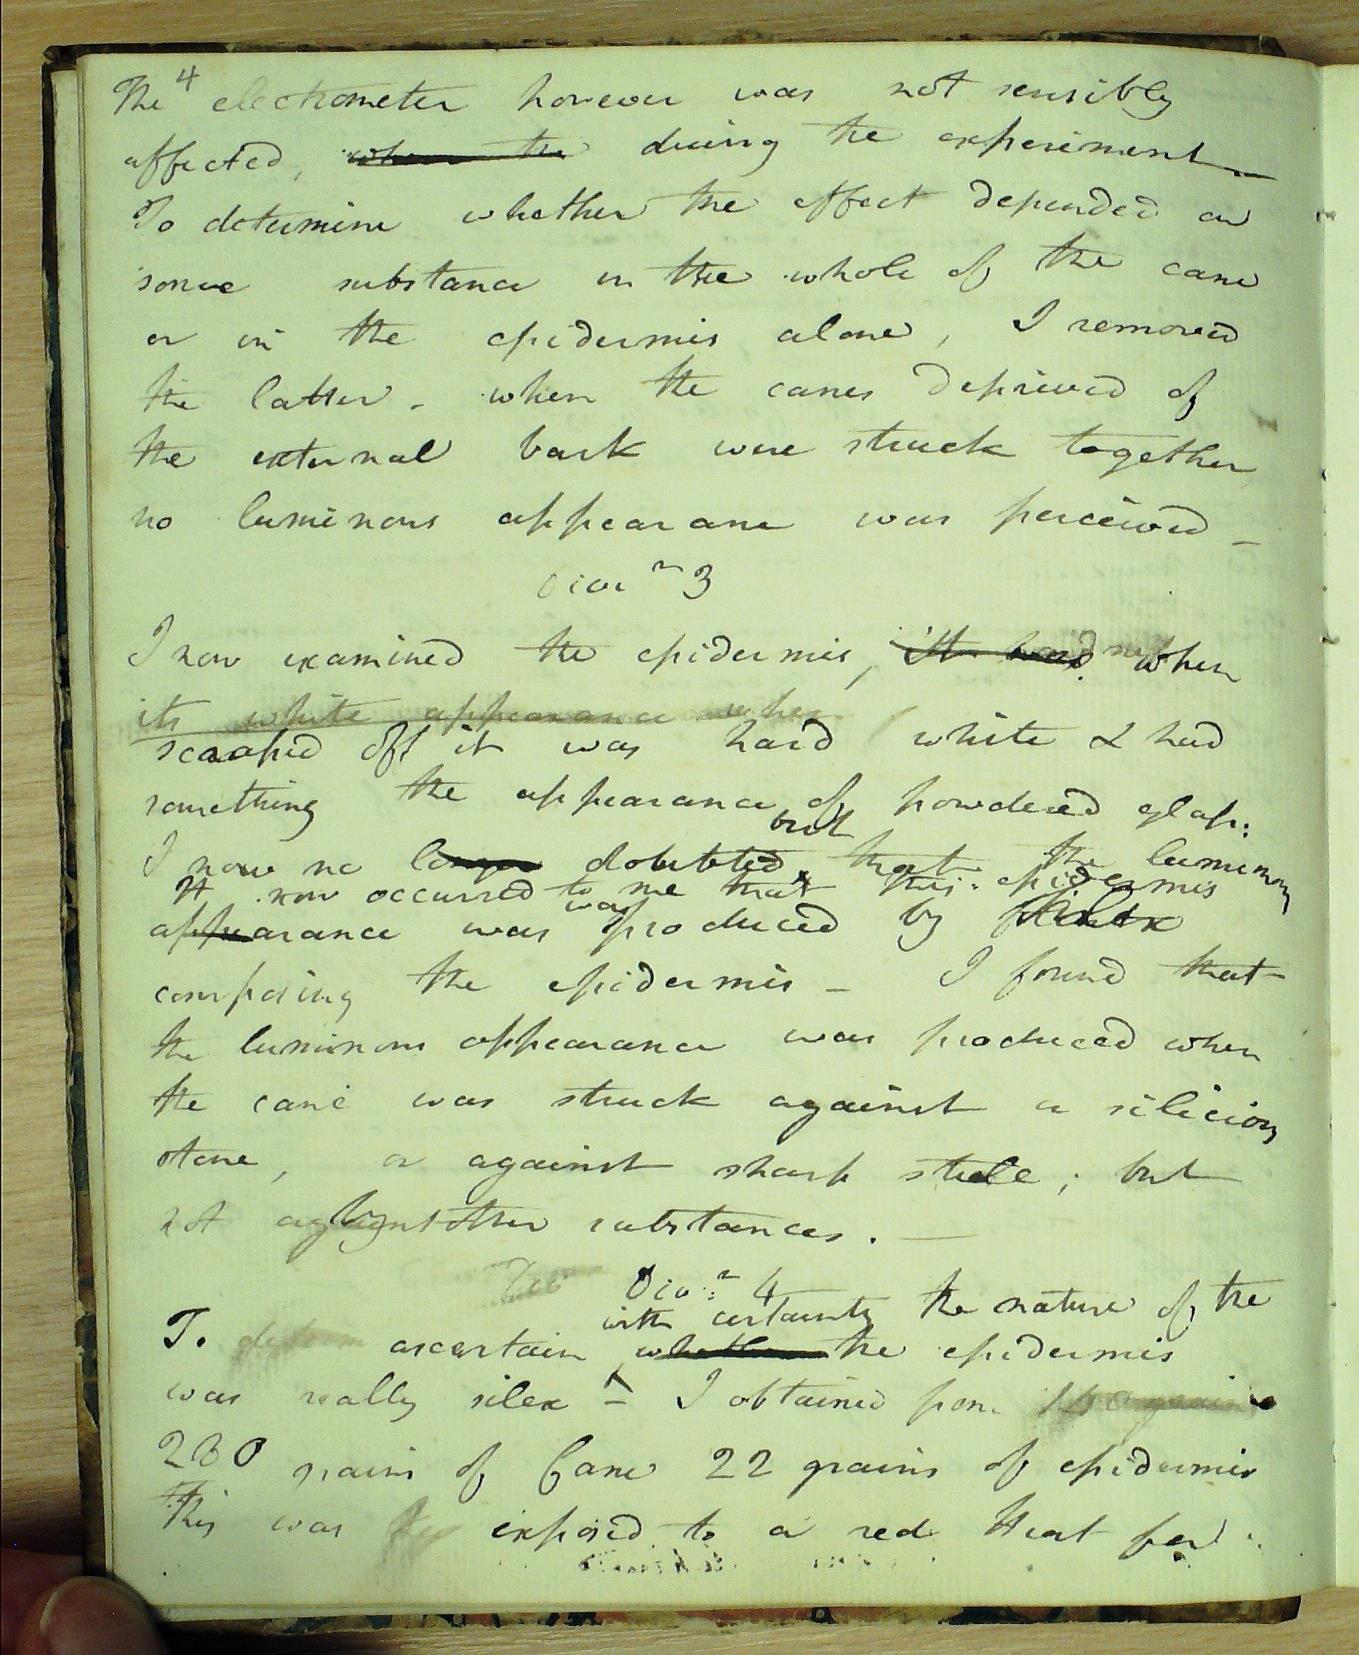 4
The electrometer however was not sensibly
affected, when the during the experiment
To determine whether the effect depended on
some substance in the whole of the cane
or in the epidermis alone, I removed
the latter - when the canes deprived of
the external bark were struck together
no luminous appearance was perceived -
Divn 3
I now examined the epidermis, when
its white appearance when
scraped off it was hard white & had
something the appearance of powdered glass:
but
I now no longer doubted that the luminous
It now occurred to me that this epidermis
was
appearance was produced by silex
composing the epidermis - I found that
the luminous appearance was produced when
the cane was struck against a silicious
stone, or against sharp steele; but
not other substances. -
Divn 4
with certainty the nature of the
To ascertain whether the epidermis
was really silex - I obtained from
280 grains of Cane 22 grains of epidermis
This was exposed to a red Heat for